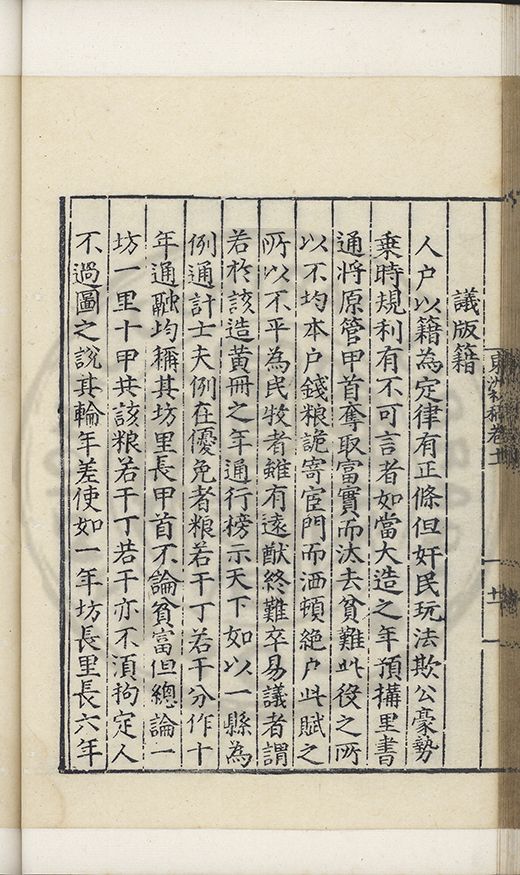 東洲初稿卷十一
十一
議版籍
人户以籍為定律有正條但奸民玩法欺公豪勢
乗時規利有不可言者如當大造之年預搆里書
通將原管甲首奪取富實而汰去貧難此役之所
以不均本户錢粮詭寄宦門而洒頓絶户此賦之
所以不平為民牧者雖有逺猷終難卒易議者謂
若於該造黄冊之年通行榜示天下如以一縣為
例通計士夫例在優免者粮若干丁若干分作十
年通融均稱其坊里長甲首不論貧富但總論一
坊一里十甲共該粮若干丁若干亦不湏拘定人
不過圖之說其輪年差使如一年坊長里長六年